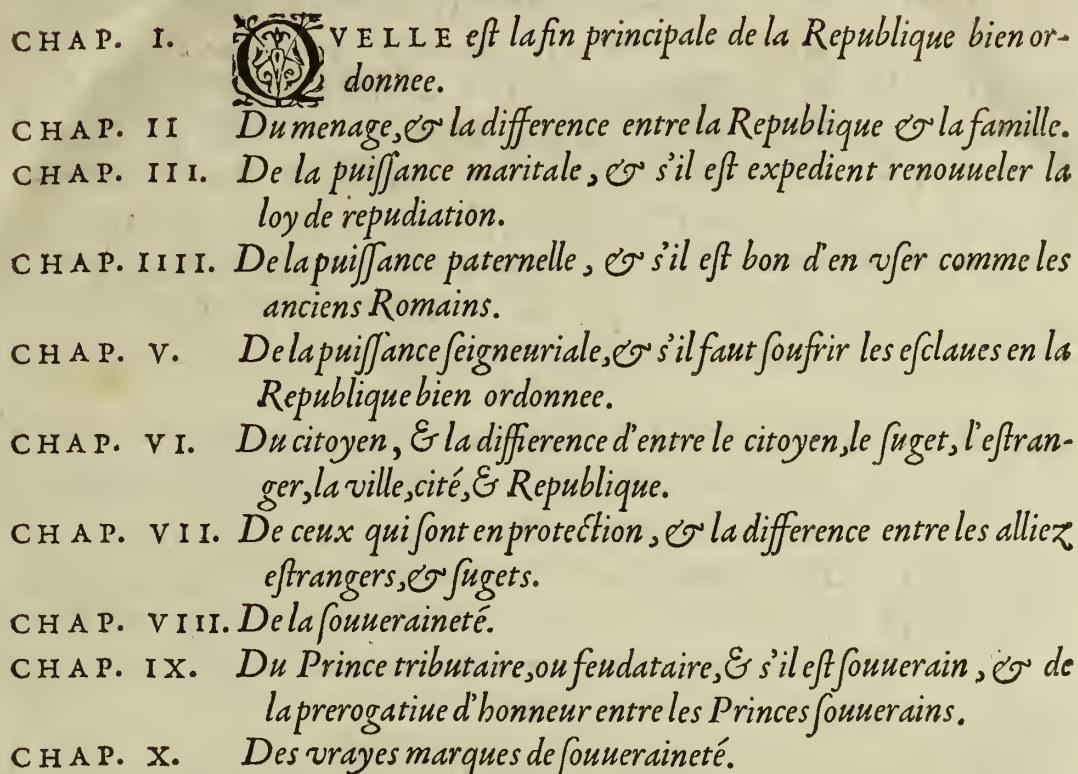 CHAP. I. QVELLE eſt la fin principale de la Republique bien or-
donnee.
CHAP. II Du menage, & la difference entre la Republique & la famille.
CHAP. III. De la puiſſance maritale, & s'il eſt expedient renouueler la
loy de repudiation.
CHAP. IIII. De la puiſſance paternelle, & s'il eſt bon d'en vſer comme les
anciens Romains.
CHAP. V. De la puiſſance ſeigneuriale, & s'il faut ſoufrir les eſclaues en la
Republique bien ordonnee.
CHAP. VI. Du citoyen, & la diffierence d'entre le citoyen, le ſuget, l'eſtran-
ger, la ville, cité, & Republique.
CHAP. VII. De ceux qui ſont en protection, & la difference entre les alliez
eſtrangers, & ſugets.
CHAP. VIII. De la ſouueraineté.
CHAP. IX. Du Prince tributaire, ou feudataire, & s'il eſt ſouuerain, & de
la prerogatiue d'honneur entre les Princes ſouuerains.
CHAP. X. Des vrayes marques de ſouueraineté.